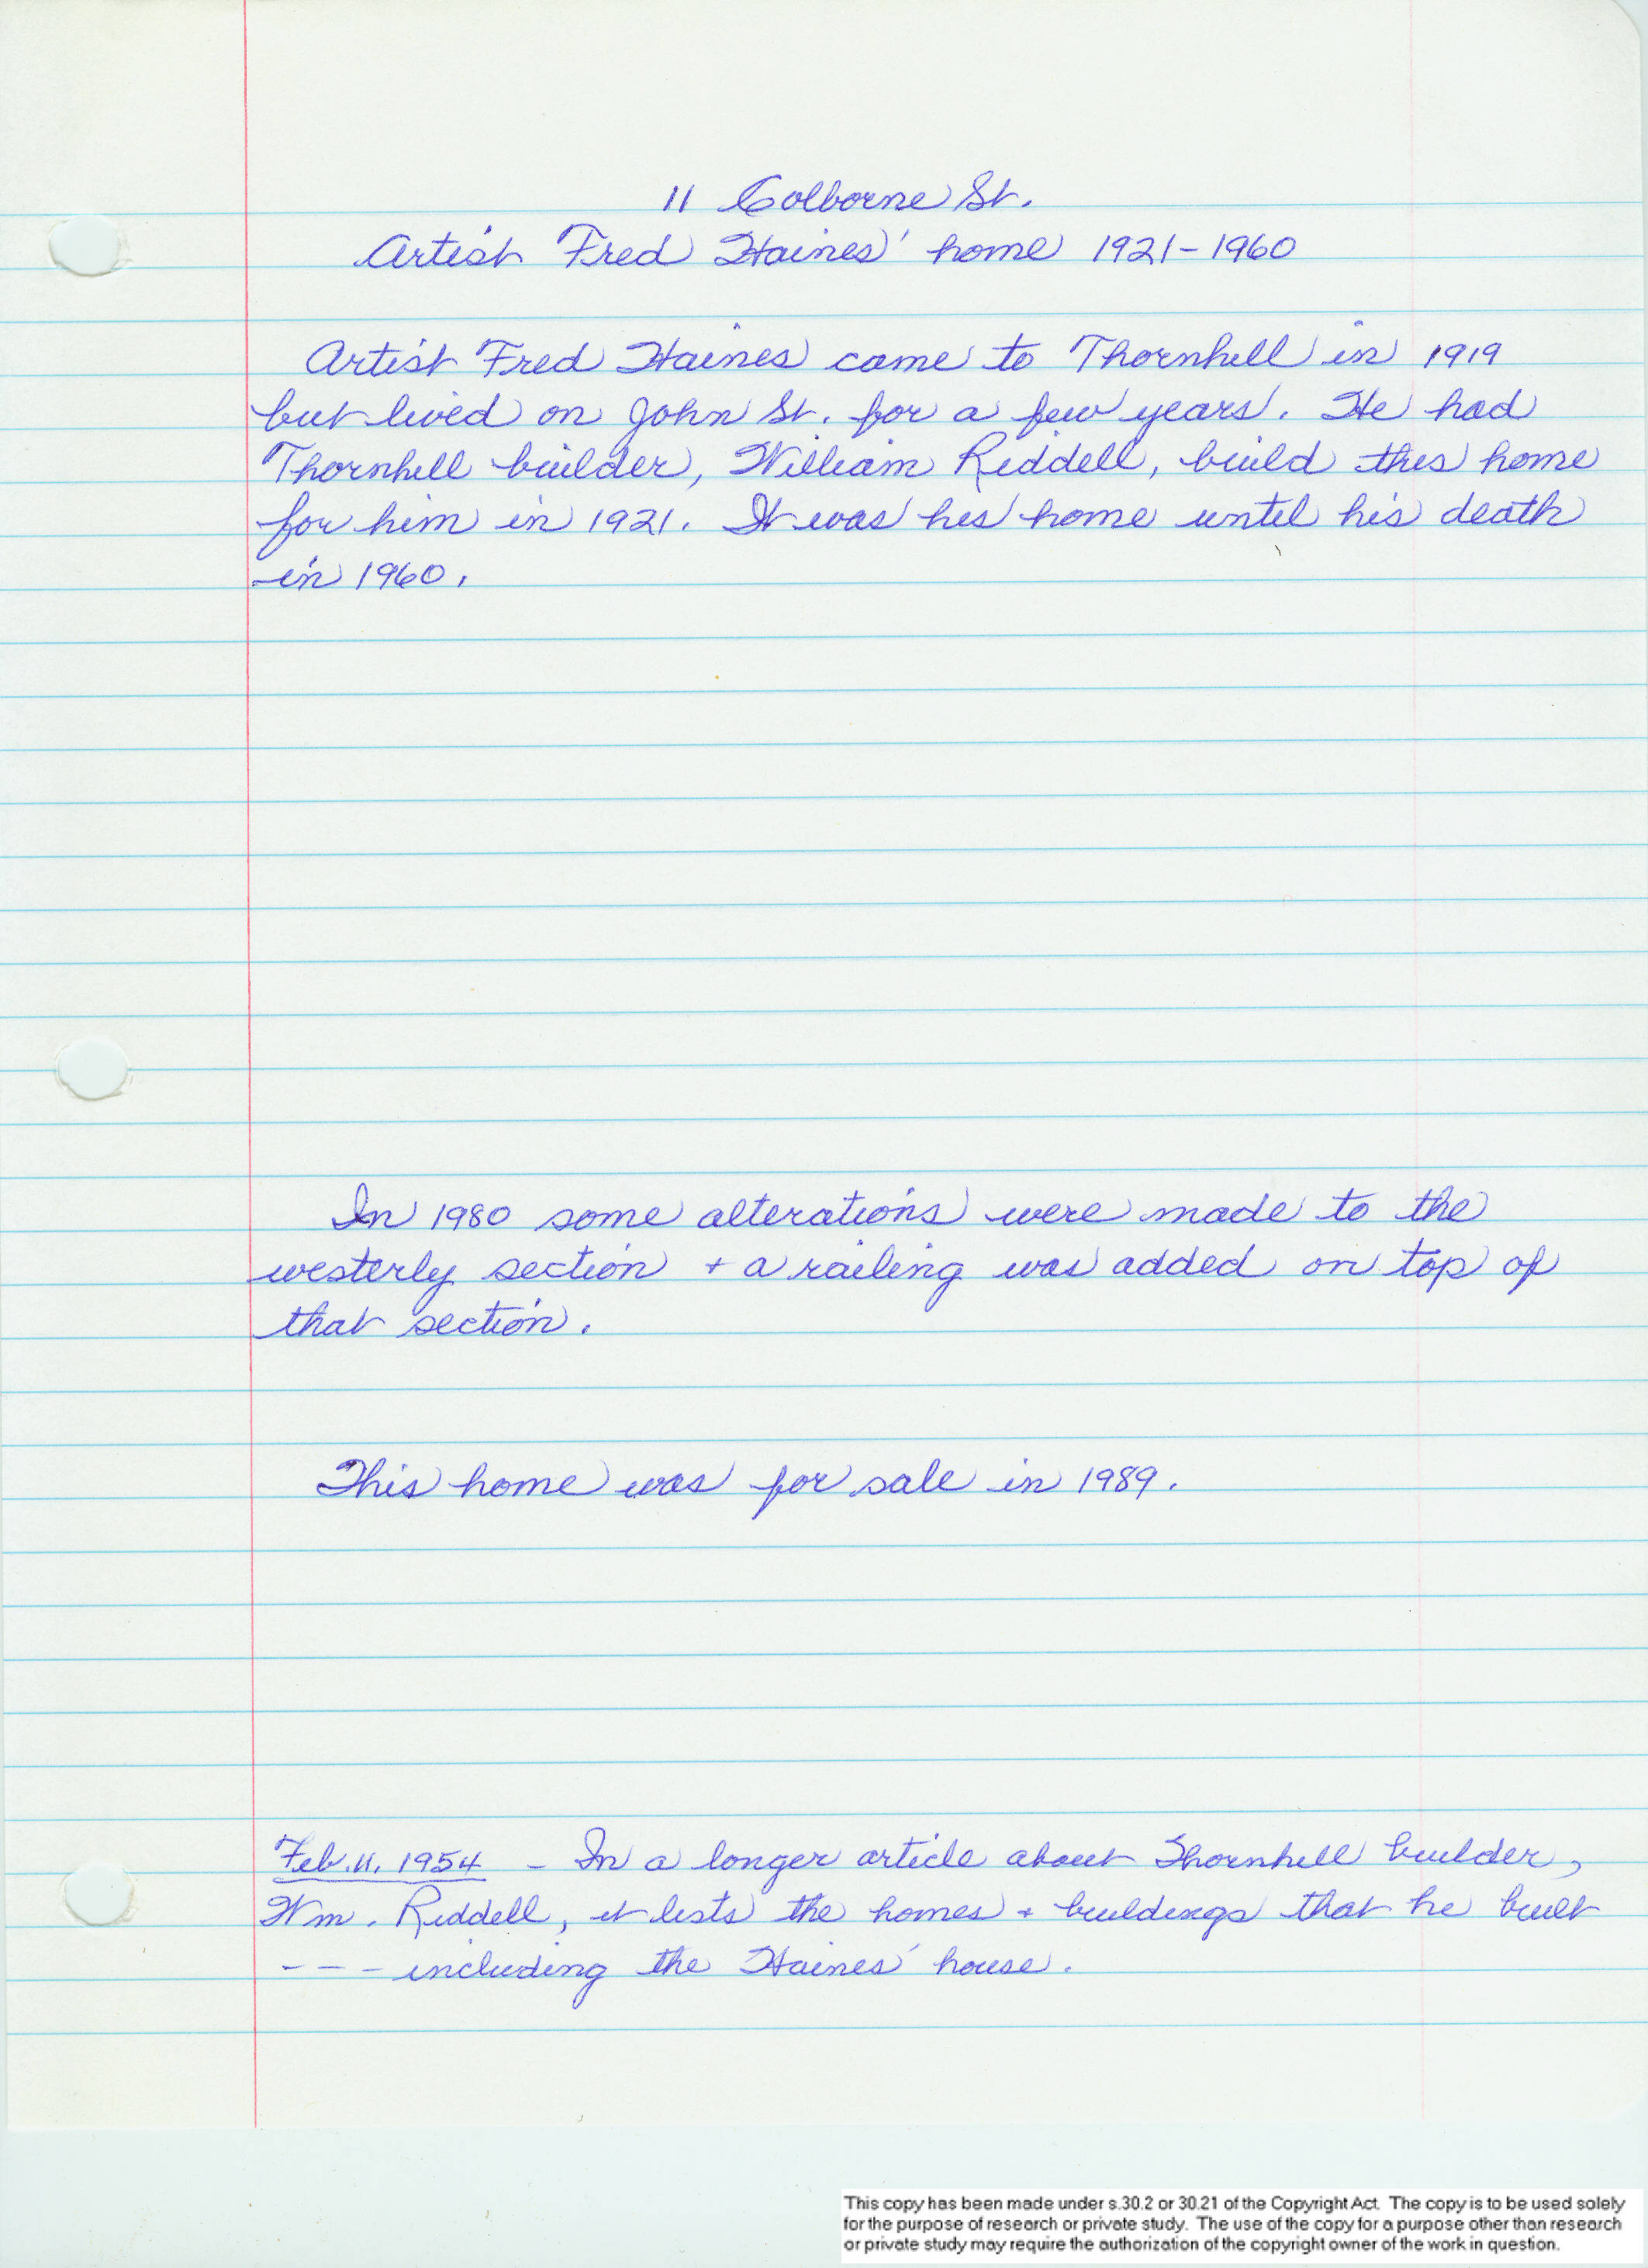 11 Colborne St.
Artist Fred Haines' home 1921-1960
Artist Fred Haines came to Thornhill in 1919
but lived on John St. for a few years. He had
Thornhill builder, William Riddell, build this home
for him in 1921. It was his home until his death
in 1960.
In 1980 some alterations were made to the
westerly section + a railing was added on top of
that section.
This home was for sale in 1989.
Feb. 11, 1954 - In a longer article about Thornhill builder,
Wm. Riddell, it lists the homes + buildings that he built
--- including the Haines' house.
This copy has been made under s.30.2 or 30.21 of the Copyright Act. The copy is to be used solely
for the purpose of research or private study. The use of the copy for a purpose other than research
or private study may require the authorization of the copyright owner of the work in question.